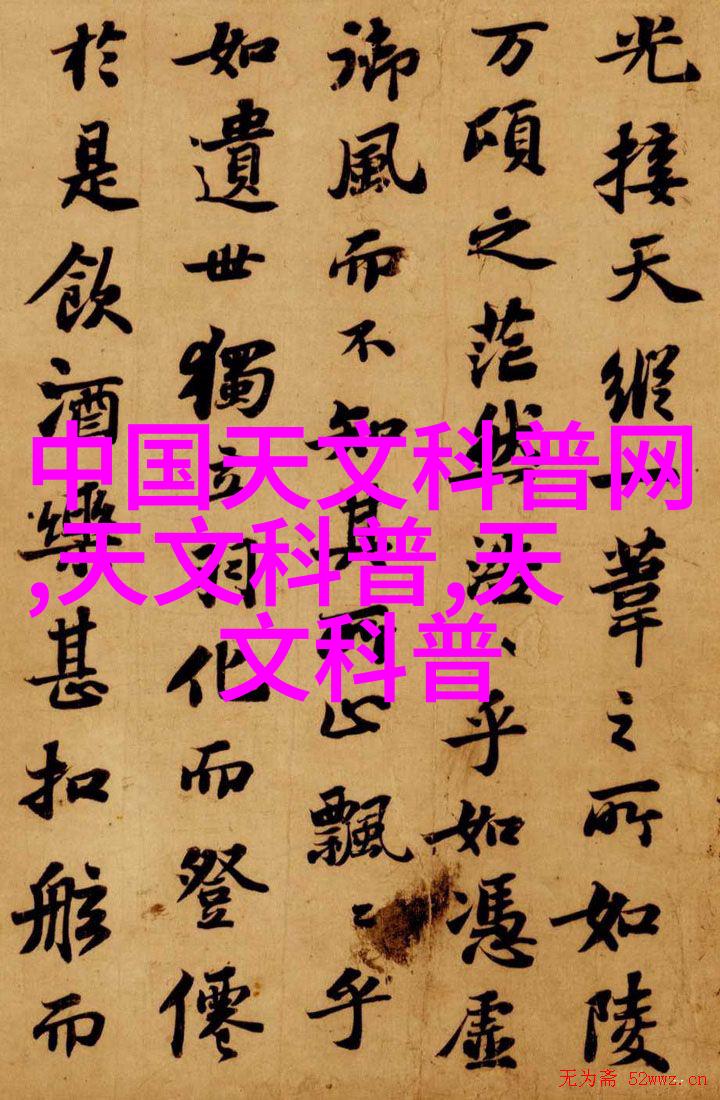 光接天縱一葦之所如陵
万頃之茫然浩〻乎如憑虛
御風而不知其所止飄〻乎
如遺世獨立羽化而登僊
於是飲酒樂甚扣舷而
中国天文科普网
,天文科普,天
文科普
无为斋 52wwz.cn